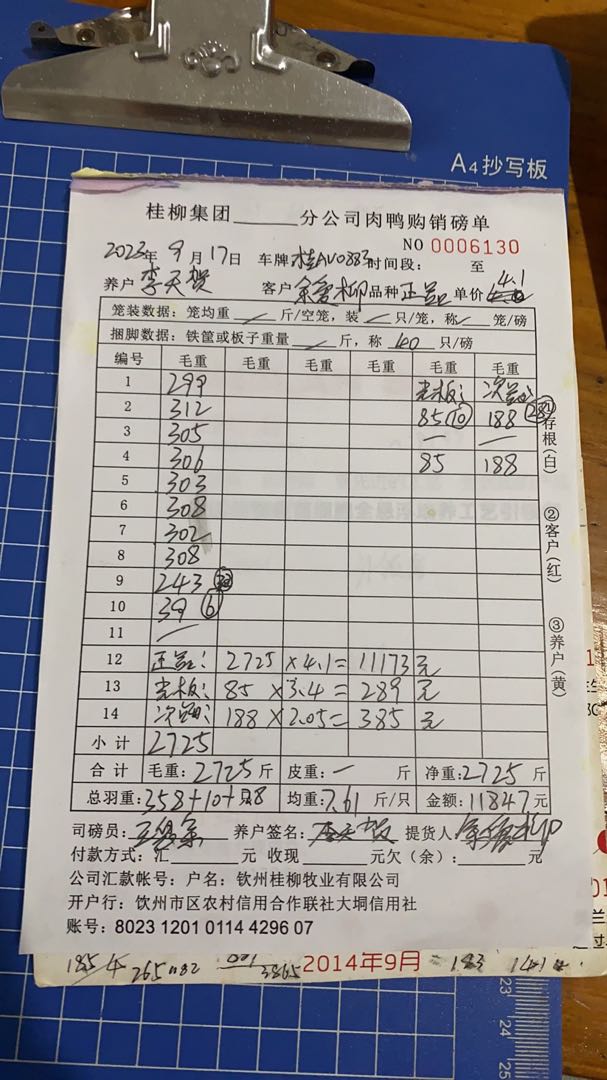 A4抄写板
桂柳集团______分公司肉鸭购销磅单
NO 0006130
2023年9月17日 车牌:桂AV0883 时间段: 至
养户 李天贺 客户 品种 正品 单价 4.1
笼装数据: 笼均重 / 斤/空笼, 装 / 只/笼, 称 / 笼/磅
捆脚数据: 铁筐或板子重量 / 斤, 称 40 只/磅
编号 毛重 毛重 毛重 毛重 毛重 毛重
1 299 光板: 次品:
2 312 85 (10) 188 (28)
3 305 — —
4 306 85 188
5 303
6 308
7 302
8 308
9 243 (32)
10 39 (6)
11 —
12 正品: 2725 × 4.1 = 11173 元
13 光板: 85 × 3.4 = 289 元
14 次品: 188 × 2.05 = 385 元
小计 2725
合计 毛重: 2725 斤 皮重: — 斤 净重: 2725 斤
总羽重: 358+10+28 均重: 7.61 斤/只 金额: 11847 元
司磅员: 养户签名: 李天贺 提货人:
付款方式: 汇______元 收现______元欠(余):______元
公司汇款帐号: 户名: 钦州桂柳牧业有限公司
开户行: 饮州市区农村信用合作联社大垌信用社
账号: 8023 1201 0114 4296 07
①存根(白)
②客户(红)
③养户(黄)
2014年9月
183 141
23
24
25